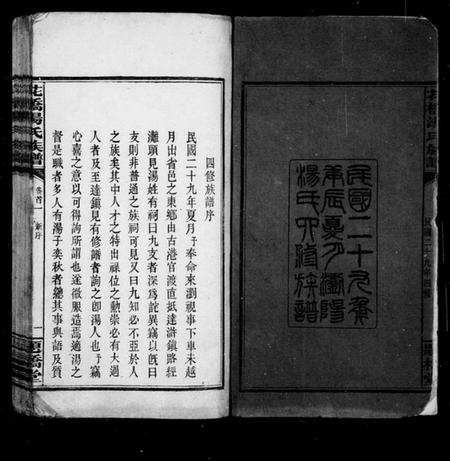 民國二十九年
庚辰夏月瀏陽
湯氏四修族譜
四修族譜序
民國二十九年夏月予奉命來瀏視事下車未越
月出省邑之東鄉由古港官渡直抵達滸鎮路經
灘頭見湯姓有祠曰九支者深爲詫異竊以旣曰
支則非普通之族祠可見又曰九知必不亞於人
之族矣其中人才之特出祿位之勳崇必有大過
人者及至達鎮見有修譜者詢之卽湯人也予竊
心喜之意以可得詢所謂也遂微服造焉適湯之
督是職者多人有湯子奕秋者總其事與語及質
花橋湯氏族譜
卷首
新序
一